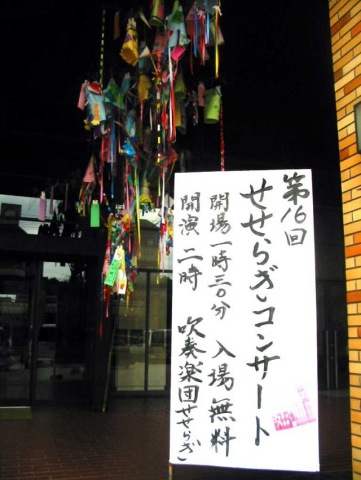 第16回
せせらぎコンサート
開場一時三〇分 入場無料
開演二時 吹奏楽団せせらぎ